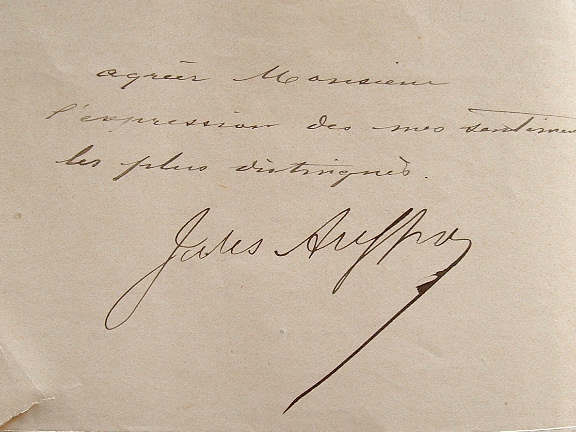 agréer Monsieur
l'expression des mes sentimen
les plus distingués.
Jules Auffray